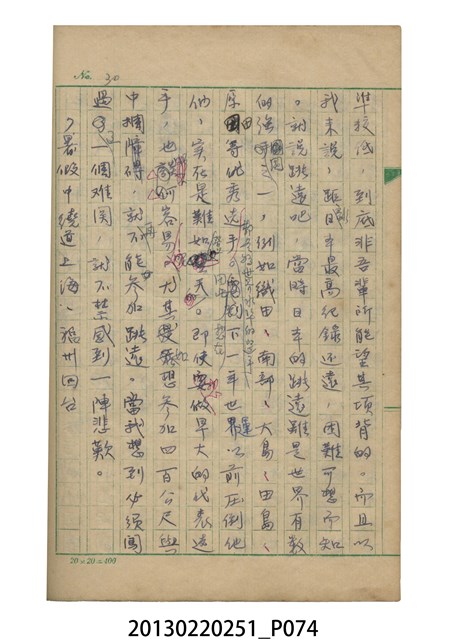 No. 30
準較低，到底非吾輩所能望其項背的。而且以
我来說，距日本最高紀錄还遠，困難可想而知
。就說跳遠吧，當時日本的跳遠雖是世界有数
的強國之一，例如織田、南部、大島、田島、
原田等優秀选手
一年世界以前压倒他
们，实在是難如登天。即使要做早大的代表选
手，也談何容易，尤其是我想参加四百公尺與
中欄障碍，就不能参加跳遠。當我想到必須闯
過一個难関，就不禁感到一陣悲歎。
暑假中繞道上海、福州回台
20×20=400
20130220251_P074